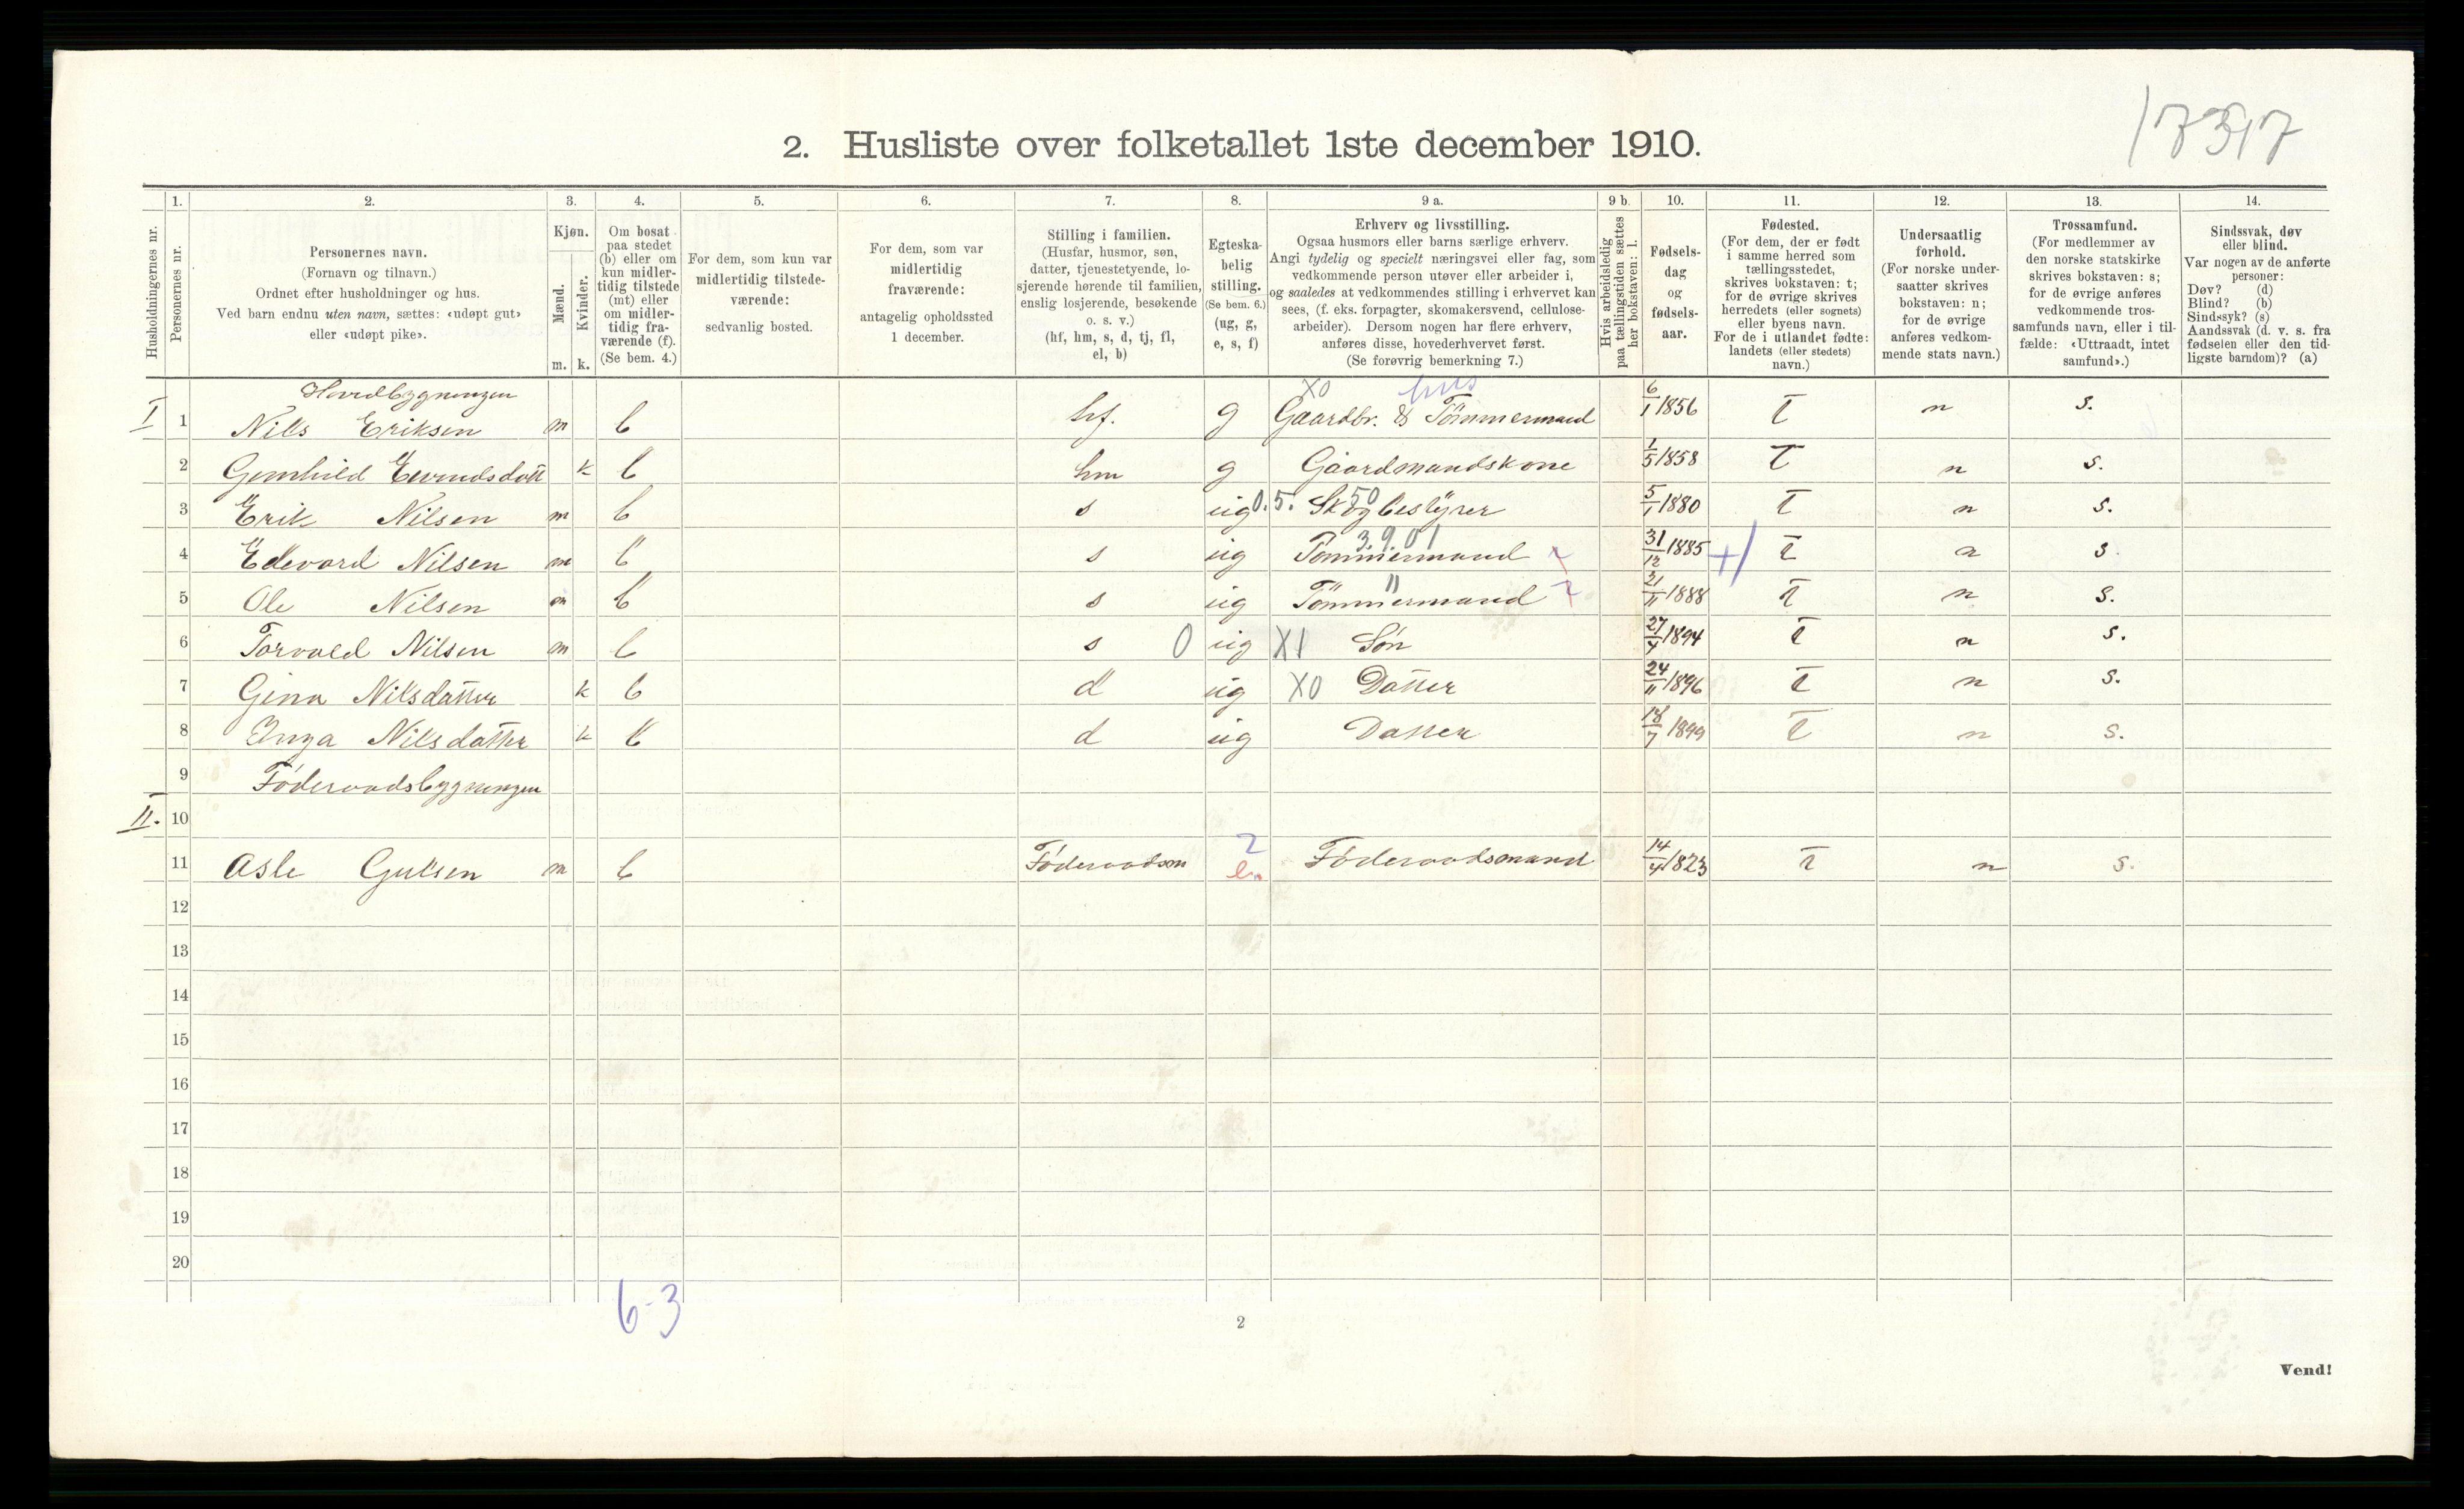 17317
2. Husliste over folketallet 1ste december 1910.
1. 2. 3. 4. 5. 6. 7. 8. 9 a. 9 b. 10. 11. 12. 13. 14.
Husholdningernes nr.
Personernes nr.
Personernes navn.
(Fornavn og tilnavn.)
Ordnet efter husholdninger og hus.
Ved barn endnu uten navn, sættes: «udøpt gut»
eller «udøpt pike».
Kjøn.
Mænd.
Kvinder.
m. k.
Om bosat
paa stedet
(b) eller om
kun midler-
tidig tilstede
(mt) eller
om midler-
tidig fra-
værende (f).
(Se bem. 4.)
For dem, som kun var
midlertidig tilstede-
værende:
sedvanlig bosted.
For dem, som var
midlertidig
fraværende:
antagelig opholdssted
1 december.
Stilling i familien.
(Husfar, husmor, søn,
datter, tjenestetyende, lo-
sjerende hørende til familien,
enslig losjerende, besøkende
o. s. v.)
(hf, hm, s, d, tj, fl,
el, b)
Egteska-
belig
stilling.
(Se bem. 6.)
(ug, g,
e, s, f)
Erhverv og livsstilling.
Ogsaa husmors eller barns særlige erhverv.
Angi tydelig og specielt næringsvei eller fag, som
vedkommende person utøver eller arbeider i,
og saaledes at vedkommendes stilling i erhvervet kan
sees, (f. eks. forpagter, skomakersvend, cellulose-
arbeider). Dersom nogen har flere erhverv,
anføres disse, hovederhvervet først.
(Se forøvrig bemerkning 7.)
Hvis arbeidsledig
paa tællingstiden sættes
her bokstaven: l.
Fødsels-
dag
og
fødsels-
aar.
Fødested.
(For dem, der er født
i samme herred som
tællingsstedet,
skrives bokstaven: t;
for de øvrige skrives
herredets (eller sognets)
eller byens navn.
For de i utlandet fødte:
landets (eller stedets)
navn.)
Undersaatlig
forhold.
(For norske under-
saatter skrives
bokstaven: n;
for de øvrige
anføres vedkom-
mende stats navn.)
Trossamfund.
(For medlemmer av
den norske statskirke
skrives bokstaven: s;
for de øvrige anføres
vedkommende tros-
samfunds navn, eller i til-
fælde: «Uttraadt, intet
samfund».)
Sindssvak, døv
eller blind.
Var nogen av de anførte
personer:
Døv? (d)
Blind? (b)
Sindssyk? (s)
Aandssvak (d. v. s. fra
fødselen eller den tid-
ligste barndom)? (a)
Hovedbygningen X0 hus
I 1 Nils Eriksen m b hf. g Gaardbr. & Tömmermand 6/1 1856 t n s.
2 Gunhild Eevindsdatt k b hm g Gaardmandskone 1/5 1858 t n s.
3 Erik Nilsen m b s ug 0.5. 50 Skogbestyrer 5/1 1880 t n s.
4 Edevard Nilsen m b s ug 3.9.01 Tømmermand 31/12 1885 t n s.
5 Ole Nilsen m b s ug " Tömmermand 21/11 1888 t n s.
6 Torvald Nilsen m b s 0 ug X1 Søn 27/4 1894 t n s.
7 Gina Nilsdatter k b d ug X0 Datter 24/11 1896 t n s.
8 Inga Nilsdatter k b d ug Datter 18/7 1899 t n s.
9 Føderaadsbygningen
II. 10
11 Asle Gulsen m b Føderaadsm 2 e. Føderaadsmand 14/4 1823 t n s.
12
13
14
15
16
17
18
19
20
6-3
2
Vend!